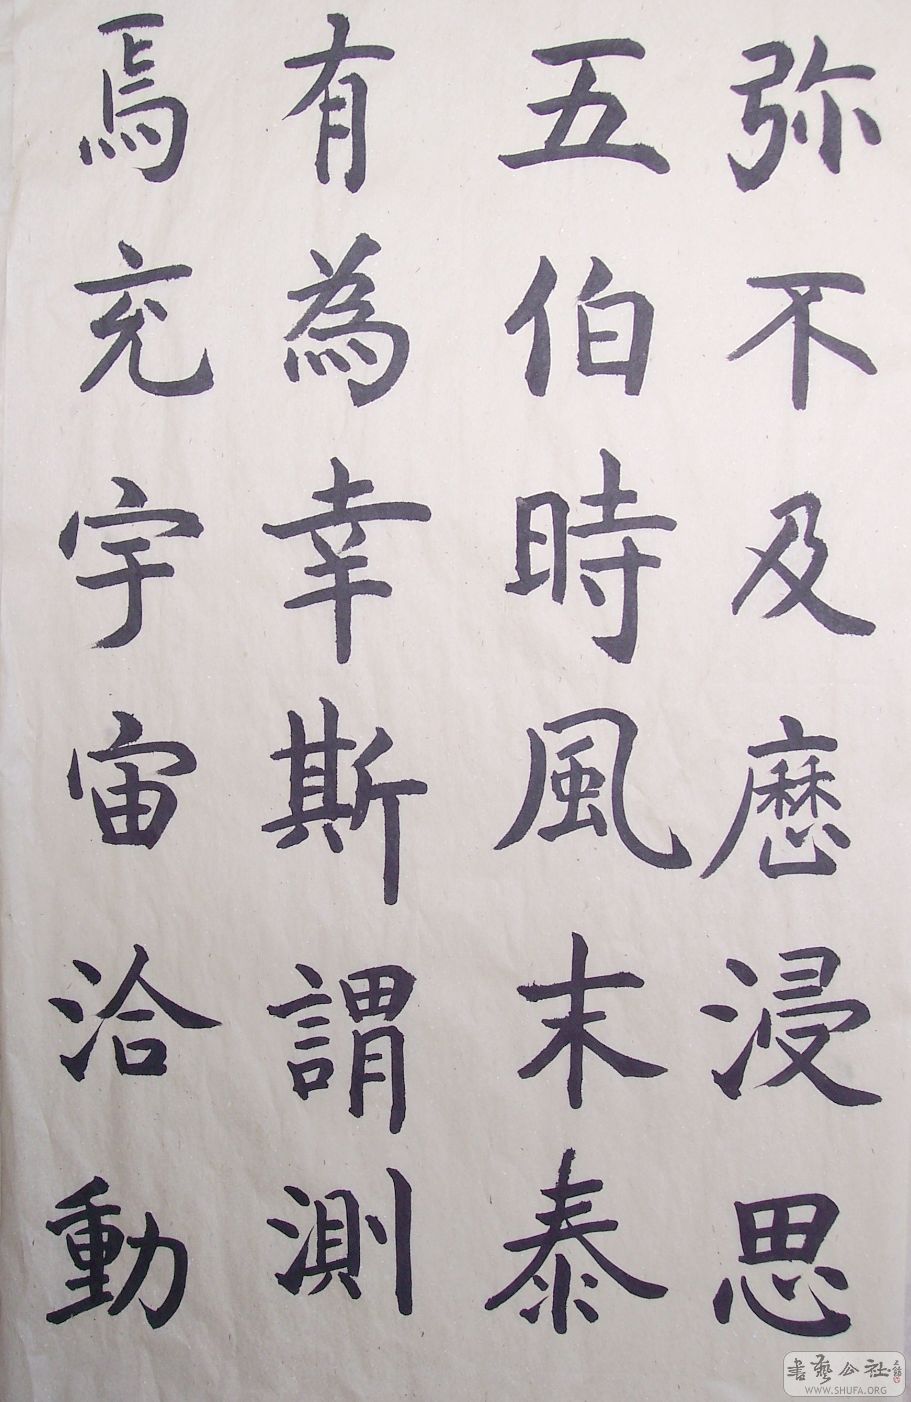 弥不及歷浸思
五伯時風末泰
有為幸斯謂測
焉充宇宙洽動
書藝公社
WWW.SHUFA.ORG